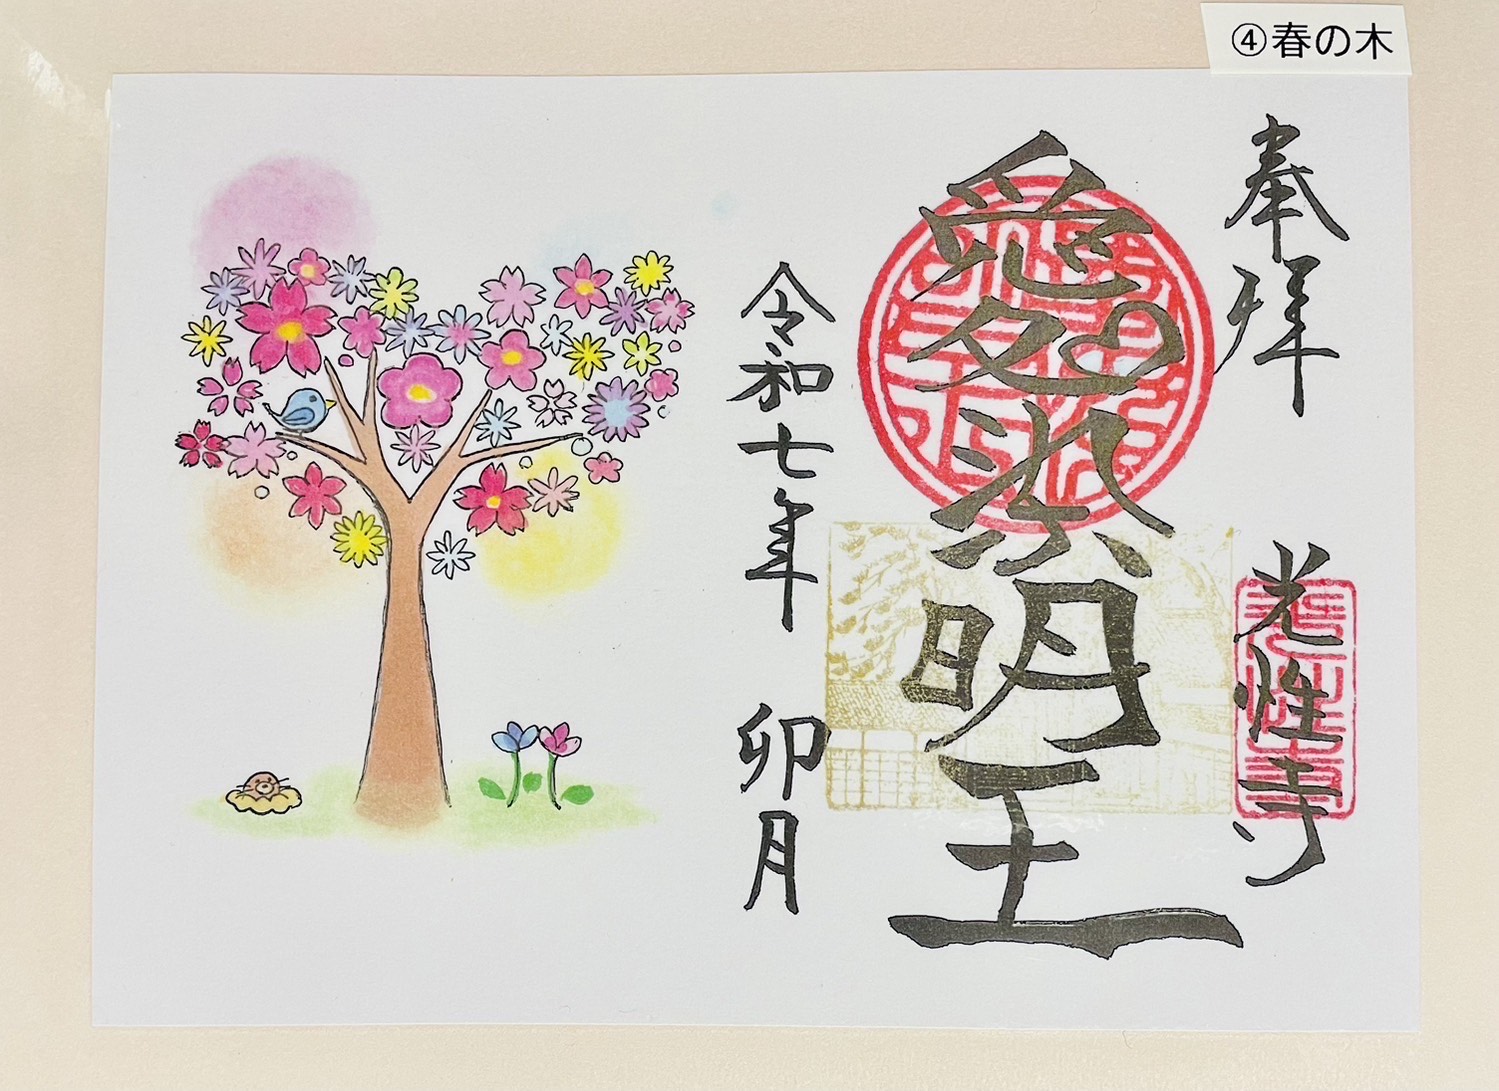 ④春の木
奉拝
光性寺
愛染明王
令和七年 卯月